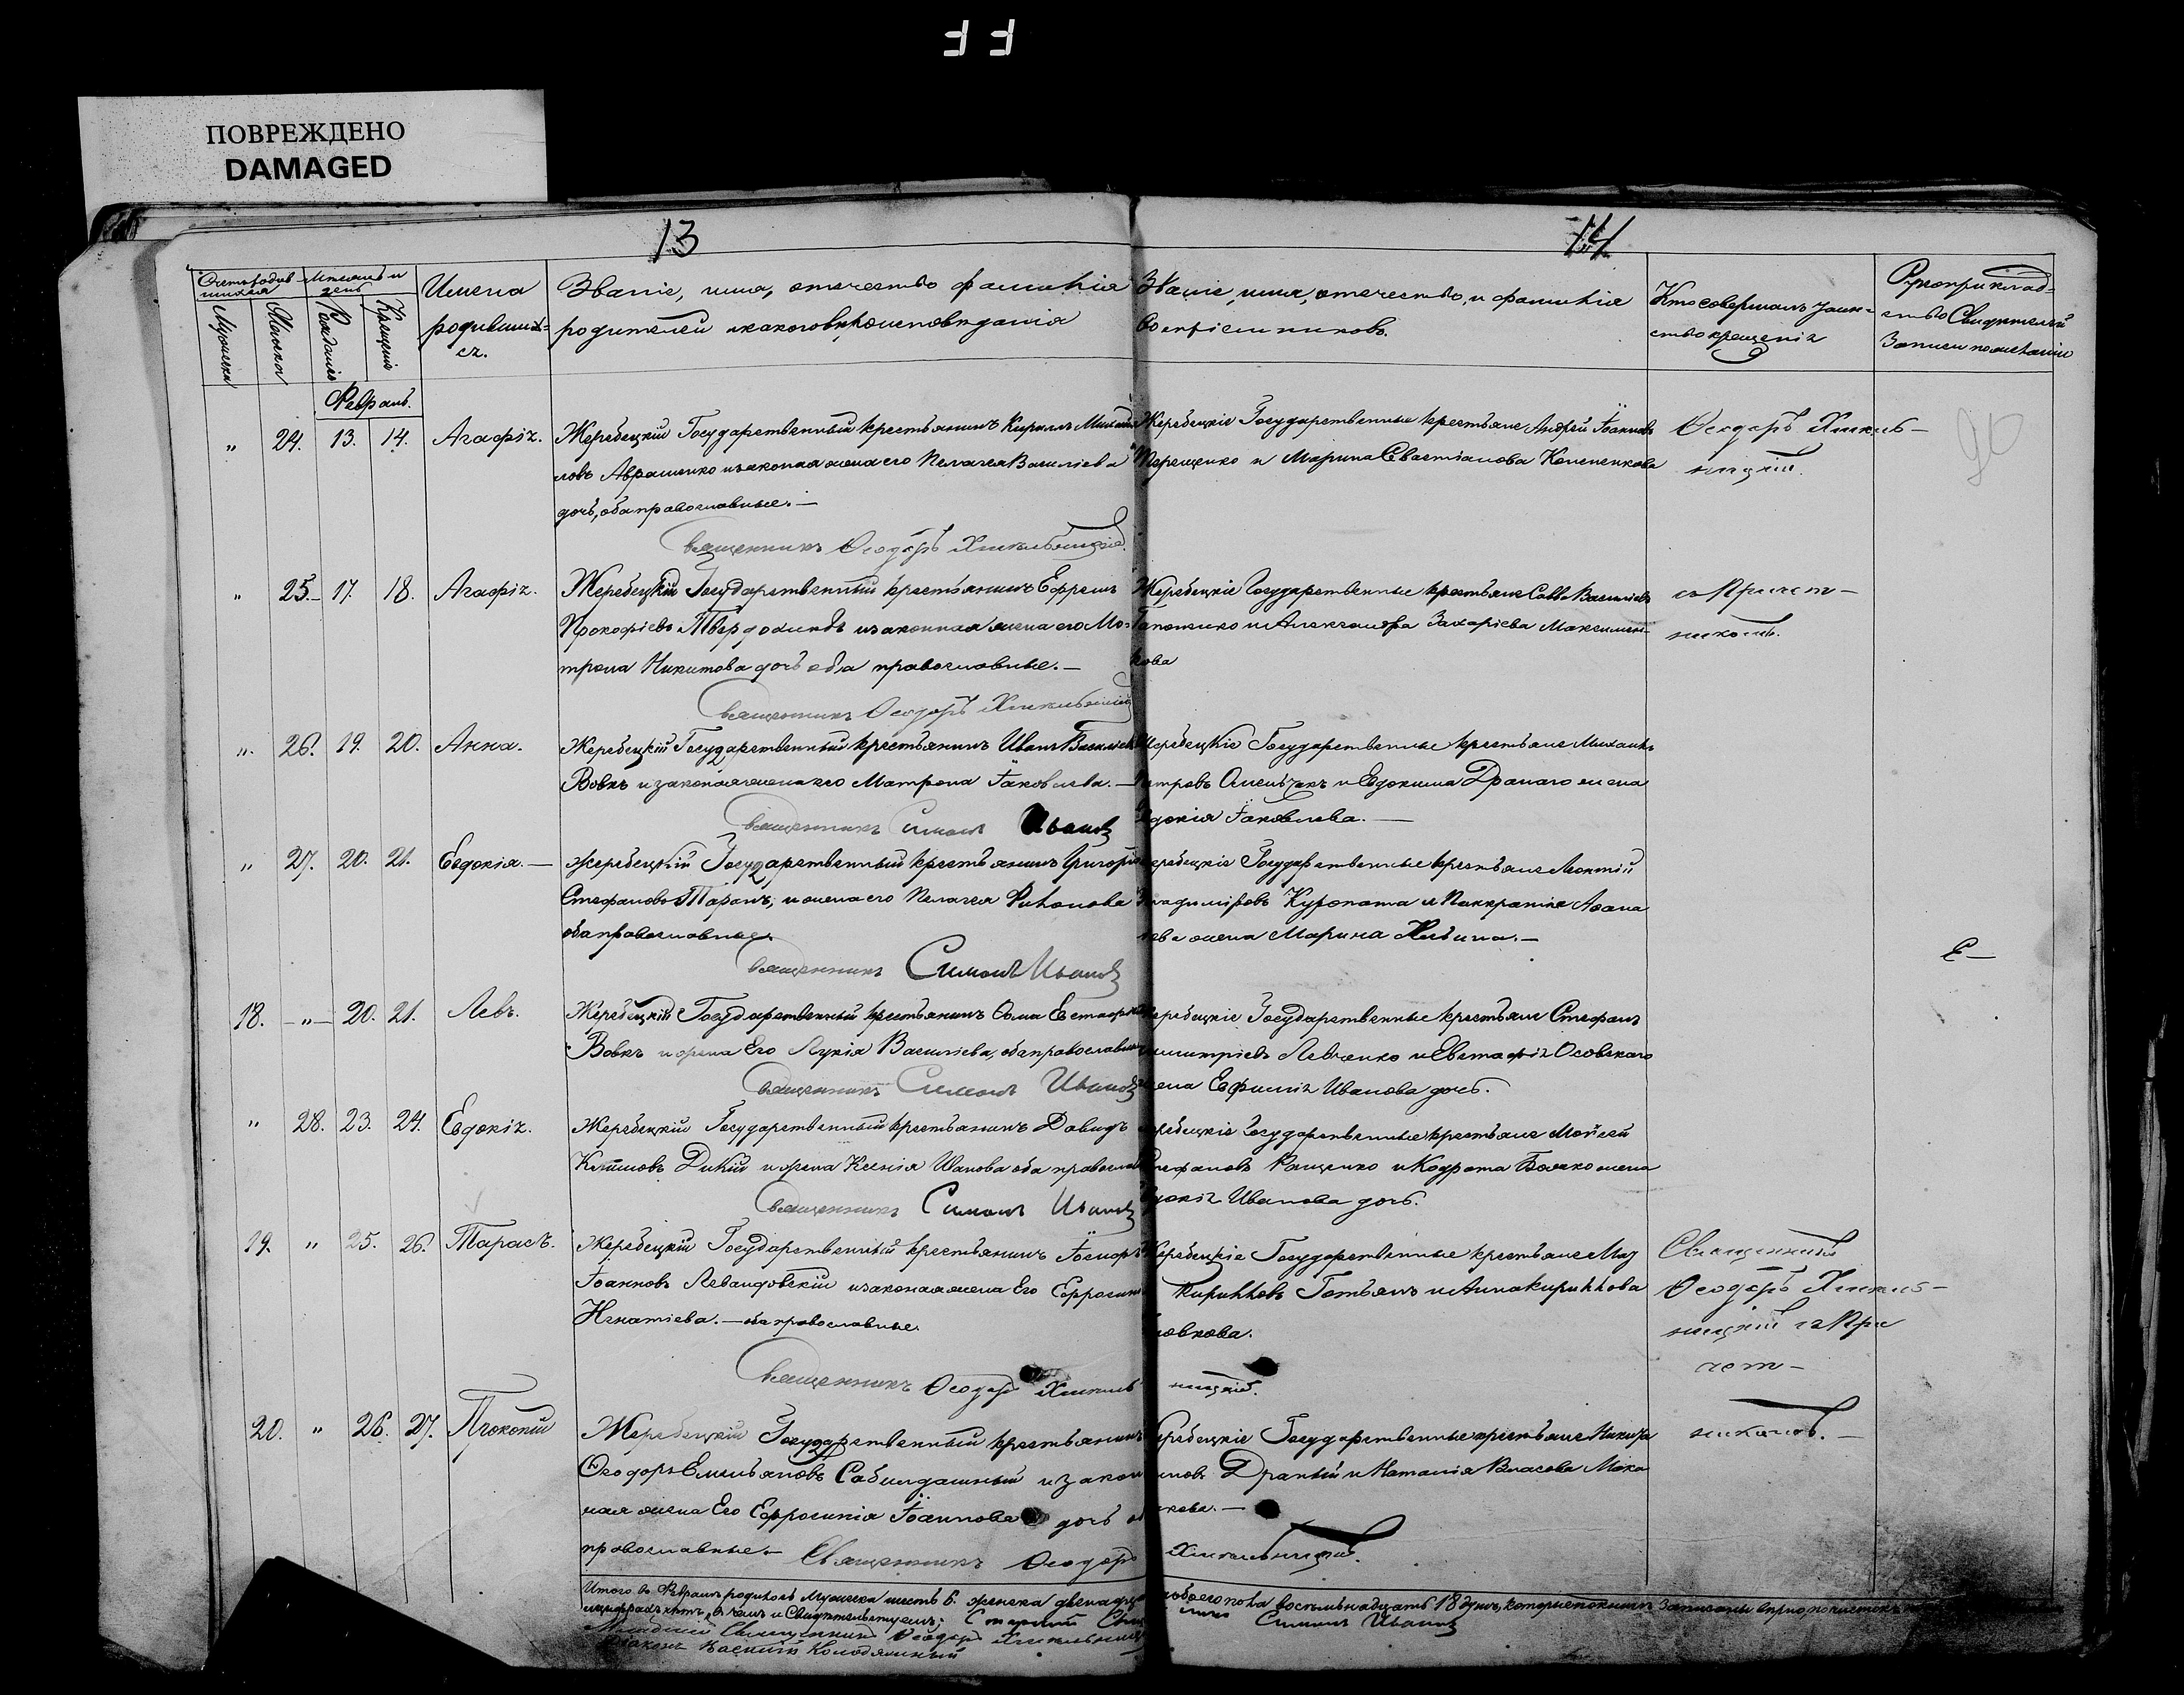 ПОВРЕЖДЕНО
DAMAGED
13
14
Счетъ родив-
шихся
Мѣсяцъ и
день
Мужеска
Женска
Рожденiе
Крещенiе
Имена
родивших-
ся.
Званiе, имя, отечество фамилiя
родителей и какого вѣроисповѣданiя
Званiе, имя, отечество, и фамилiя
воспрiемниковъ.
Кто совершалъ таин-
ство крещенiя
Рукоприклад-
ство Свидѣтелей
Записи по желанiю
Февраль.
„ 24. 13. 14. Агафiя.
Жеребецкiй Государственный крестьянинъ Кирилъ Михаи
ловъ Авраменко и законная жена его Пелагея Василiева
дочь, оба православные.—
Священникъ Ѳеодоръ Хмельницкiй.
Жеребецкiе Государственные крестьяне Андрей Iоанновъ
Терещенко и Марина Севастiанова
Ѳеодоръ Хмель-
ницкiй.
„ 25.– 17. 18. Агафiя.
Жеребецкiй Государственный крестьянинъ Ефремъ
Прокофiевъ Твердохлѣбъ и законная жена его Ма-
трона Никитова дочь оба православные.—
Священникъ Ѳеодоръ Хмельницкiй
Жеребецкiе Государственные крестьяне Савва Василiевъ
Гапоненко и Александра Захарiева Максимен-
кова
съ Причет-
никомъ.
„. 26. 19. 20. Анна.
Жеребецкiй Государственный крестьянинъ Иванъ Василiевъ
Вовкъ и законая жена его Матрона Iаковлева.—
Священникъ Симонъ Ивановъ
Жеребецкiе Государственные крестьяне Михаилъ
Петровъ и Евдокима Дранаго жена
Евдокiя Iаковлева.—
„ 27. 20. 21. Евдокiя.—
Жеребецкiй Государственный крестьянинъ Григорiй
Стефановъ Таранъ, и жена его Пелагея Филонова
оба православные.
Священникъ Симонъ Ивановъ
Жеребецкiе Государственные крестьяне Леонтiй
Владимiровъ Куропата и Панкратiя
жена Марина
Е—
18. –„– 20. 21. Левъ.
Жеребецкiй Государственный крестьянинъ Ѳома Евстафiевъ
Вовкъ и жена Его Лукiя Василiева, оба православные
Священникъ Симонъ Ивановъ
Жеребецкiе Государственные крестьяне Стефанъ
Димитрiевъ Левченко и Евстафiя Осовскаго
жена Евфимiя Иванова дочь.
„ 28. 23. 24. Евдокiя.
Жеребецкiй Государственный крестьянинъ Давидъ
Дикiй и жена Ксенiя Иванова оба православ
Священникъ Симонъ Ивановъ
Жеребецкiе Государственные крестьяне Мойсей
Стефановъ и Кодрата жена
Евдокiя Иванова дочь.
19. „ 25. 26. Тарасъ.
Жеребецкiй Государственный крестьянинъ
Iоанновъ Левандовскiй и законая жена Его Ефросинiя
Игнатiева.— оба православные.
Священникъ Ѳеодоръ Хмельницкiй.
Жеребецкiе Государственные крестьяне
Кирилловъ и Анна Кириллова
Вовкова.
Священникъ
Ѳеодоръ Хмель-
ницкiй съ При
чет-
20. „ 26. 27. Прокопiй
Жеребецкiй Государственный крестьянинъ
Ѳеодоръ Емельяновъ и закон
ная жена Его Ефросинiя Iоаннова дочь оба
православные.— Священникъ Ѳеодоръ Хмельницкiй.
Жеребецкiе Государственные крестьяне
Драный и Наталiя Власова
никомъ.—
Итого въ Февралѣ родилось мужеска шесть 6. женска двенадца обоего пола восемьнадцать 18 душъ,
и Свидѣтельствуемъ: Старшiй Священникъ Симонъ Ивановъ
Младшiй Священникъ Ѳеодоръ Хмельницкiй
Дiаконъ Василiй